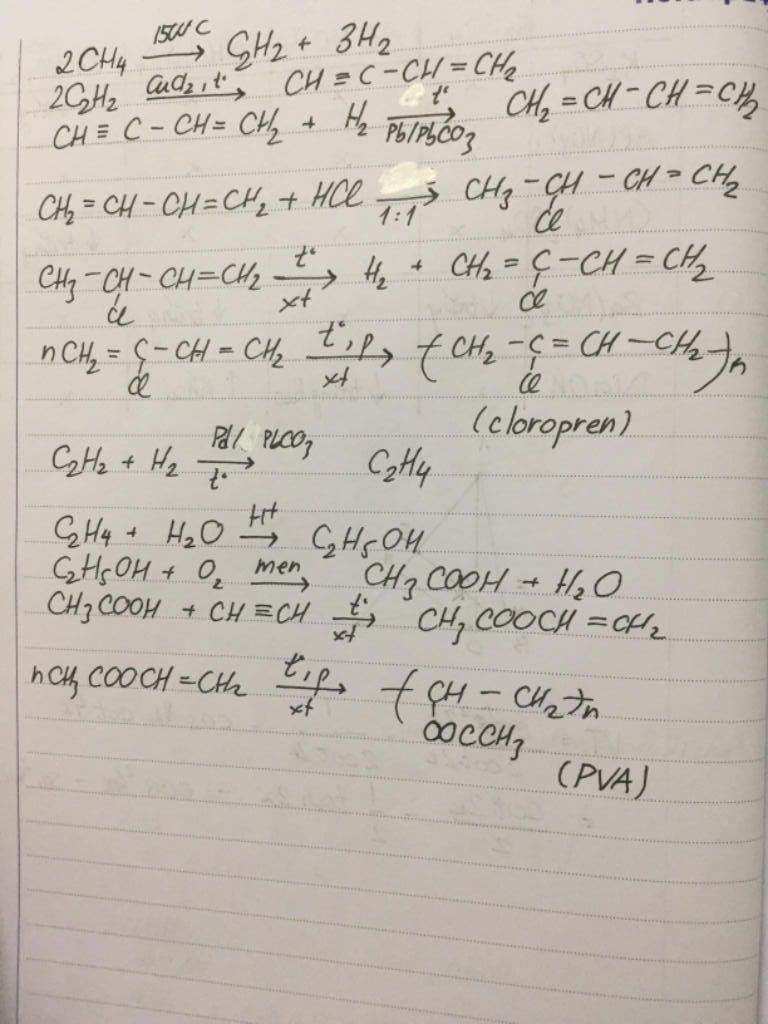 2CH4 —1500°C→ C2H2 + 3H2
2C2H2 —CuCl2, t°→ CH ≡ C – CH = CH2
CH ≡ C – CH = CH2 + H2 —t° / Pb/PbCO3→ CH2 = CH – CH = CH2
CH2 = CH – CH = CH2 + HCl —1:1→ CH3 – CH(Cl) – CH = CH2
CH3 – CH(Cl) – CH = CH2 —t° / xt→ H2 + CH2 = C(Cl) – CH = CH2
nCH2 = C(Cl) – CH = CH2 —t°, p / xt→ (CH2 – C(Cl) = CH – CH2)n
(cloropren)
C2H2 + H2 —Pd/ PbCO3 / t°→ C2H4
C2H4 + H2O —H+→ C2H5OH
C2H5OH + O2 —men→ CH3COOH + H2O
CH3COOH + CH ≡ CH —t° / xt→ CH3COOCH = CH2
nCH3COOCH = CH2 —t°, p / xt→ (CH – CH2)n
OOCCH3
(PVA)